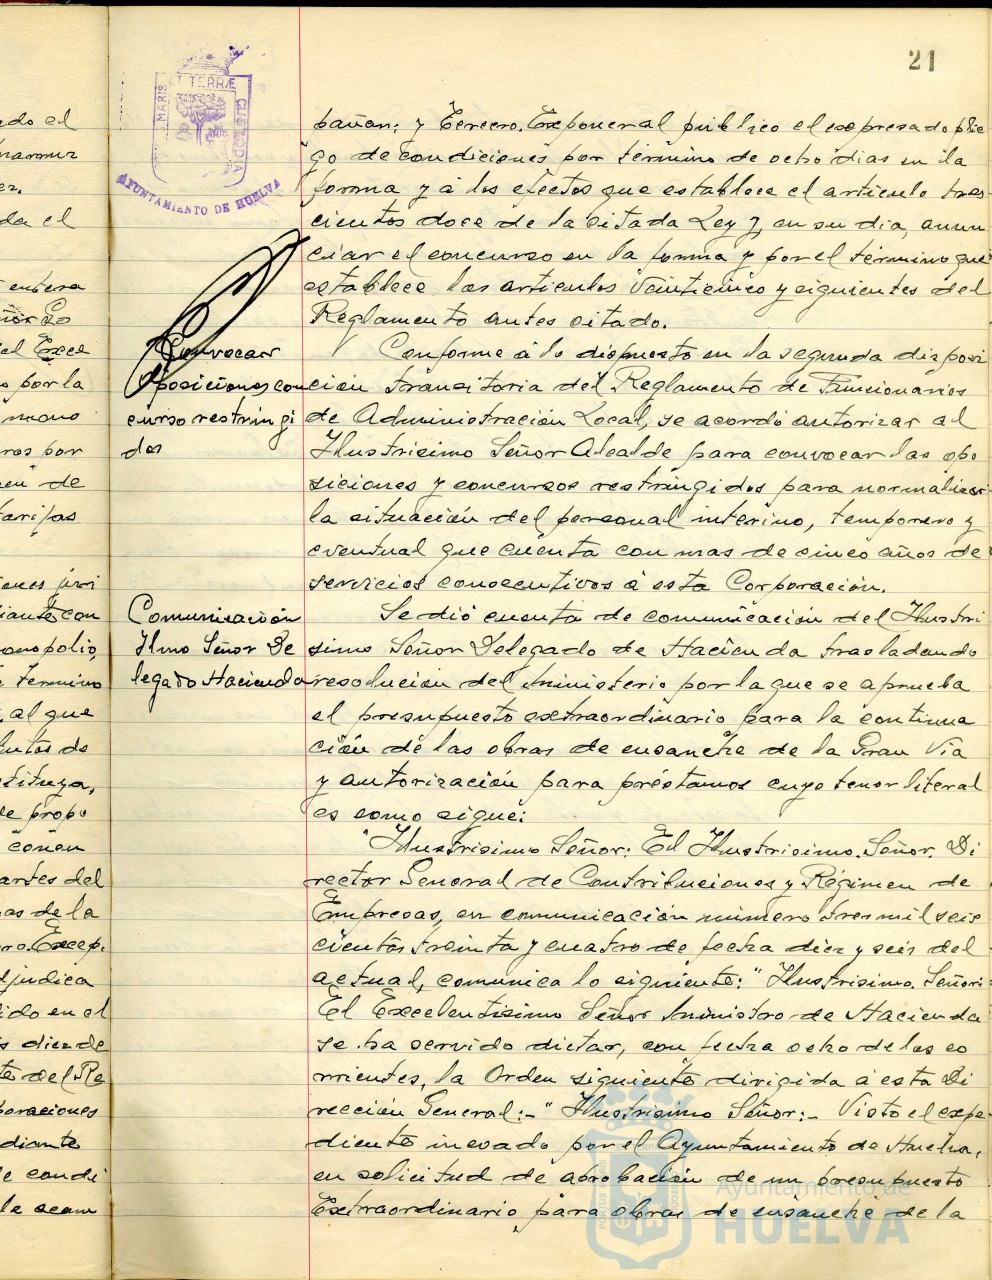 21
MARIS
TERRÆ
CUSTODIA
AYUNTAMIENTO DE HUELVA
pañan; y Tercero. Exponer al público el expresado plie
go de condiciones por término de ocho días en la
forma y á los efectos que establece el artículo tres-
cientos doce de la citada Ley y, en su día, anun
ciar el concurso en la forma y por el término que
establece los artículos veinticinco y siguientes del
Reglamento antes citado.
Convocar
oposiciones, con
curso restringi
dos
Conforme á lo dispuesto en la segunda disposi
ción transitoria del Reglamento de Funcionarios
de Administración Local, se acordó autorizar al
Ilustrisimo Señor Alcalde para convocar las opo
siciones y concursos restringidos para normalizar
la situación del personal interino, temporero y
eventual que cuenta con mas de cinco años de
servicios consecutivos á esta Corporación.
Comunicación
Ilmo Señor De
legado Hacienda
Se dió cuenta de comunicación del Ilustri
simo Señor Delegado de Hacienda trasladando
resolución del Ministerio por la que se aprueba
el presupuesto extraordinario para la continua
ción de las obras de ensanche de la Gran Vía
y autorización para préstamos cuyo tenor literal
es como sigue:
"Ilustrisimo Señor: El Ilustrisimo. Señor. Di
rector General de Contribuciones y Régimen de
Empresas, en comunicación número tres mil seis
cientos treinta y cuatro de fecha diez y seis del
actual, comunica lo siguiente: "Ilustrisimo. Señor:
El Excelentisimo Señor Ministro de Hacienda
se ha servido dictar, con fecha ocho de los co
rrientes, la Orden siguiente dirigida á esta Di
rección General:- "Ilustrisimo Señor:- Visto el expe-
diente incoado por el Ayuntamiento de Huelva,
en solicitud de aprobación de un presupuesto
Extraordinario para obras de ensanche de la
Ayuntamiento de
HUELVA